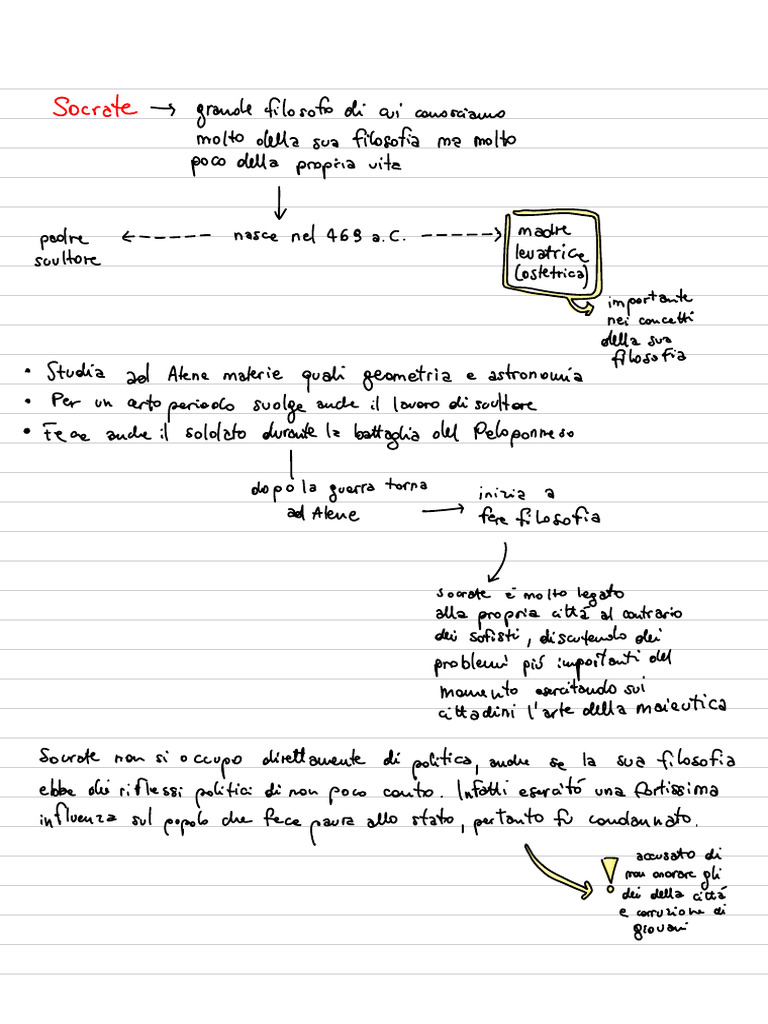 Socrate → grande filosofo di cui conosciamo
molto della sua filosofia ma molto
poco della propria vita
padre
scultore
nasce nel 469 a.C.
madre
levatrice
(ostetrica)
importante
nei concetti
della sua
filosofia
• Studia ad Atene materie quali geometria e astronomia
• Per un certo periodo svolge anche il lavoro di scultore
• Fece anche il soldato durante la battaglia del Peloponneso
dopo la guerra torna
ad Atene
inizia a
fare filosofia
Socrate è molto legato
alla propria città al contrario
dei sofisti, discutendo dei
problemi più importanti del
momento esercitando sui
cittadini l'arte della maieutica
Socrate non si occupo direttamente di politica, anche se la sua filosofia
ebbe dei riflessi politici di non poco conto. Infatti esercitó una fortissima
influenza sul popolo che fece paura allo stato, pertanto fù condannato.
! accusato di
non onorare gli
dei della città
e corruzione di
giovani